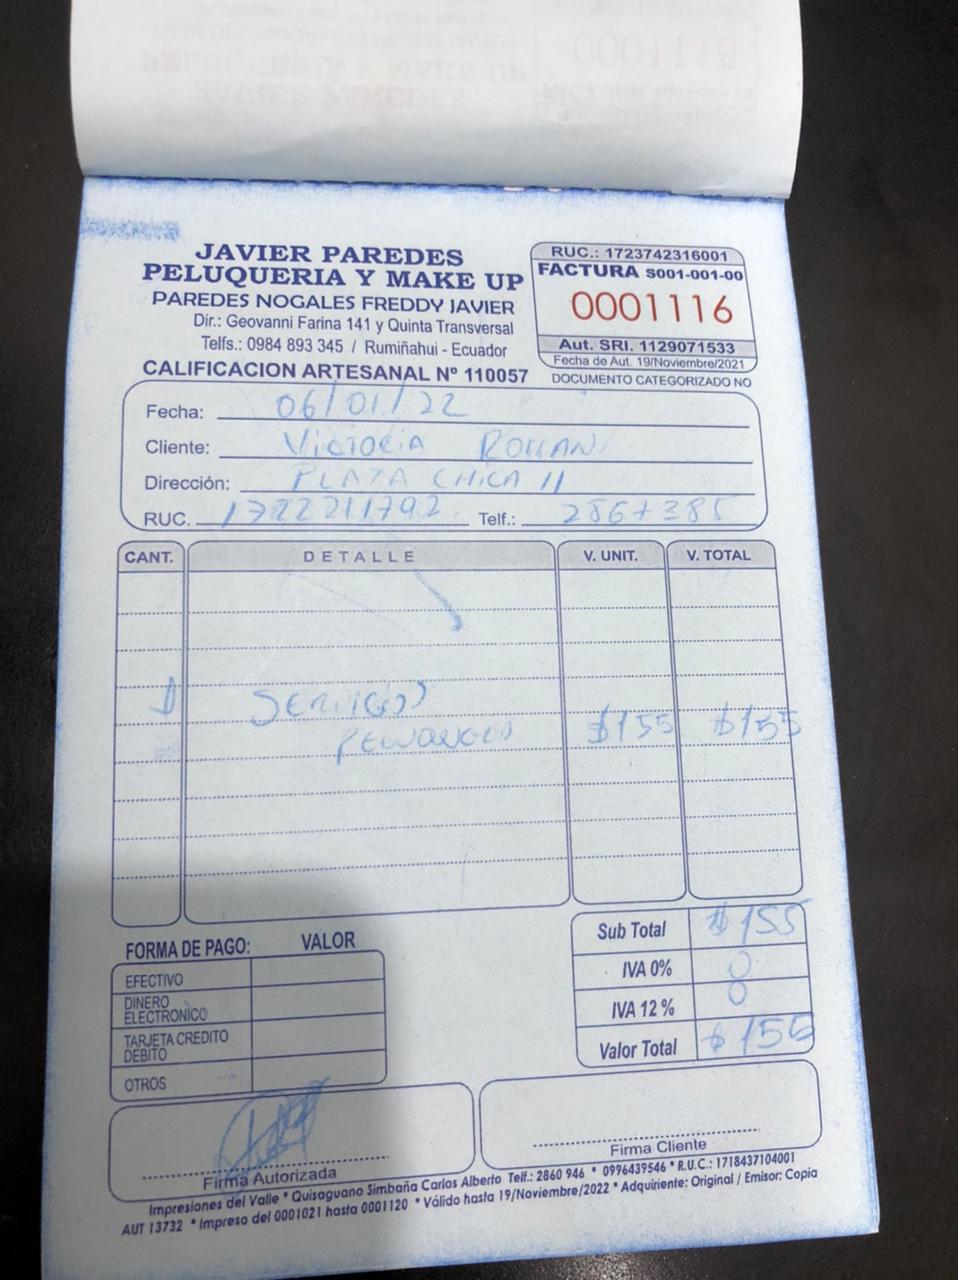 JAVIER PAREDES
PELUQUERIA Y MAKE UP
PAREDES NOGALES FREDDY JAVIER
Dir.: Geovanni Farina 141 y Quinta Transversal
Telfs.: 0984 893 345 / Rumiñahui - Ecuador
CALIFICACION ARTESANAL Nº 110057
RUC.: 1723742316001
FACTURA S001-001-00
0001116
Aut. SRI. 1129071533
Fecha de Aut. 19/Noviembre/2021
DOCUMENTO CATEGORIZADO NO
Fecha: 06/01/22
Cliente: Victoria
Dirección: PLAZA CHICA II
RUC. 1722211792 Telf.: 2867385
CANT. DETALLE V. UNIT. V. TOTAL
1 SERVICIOS
$155 $155
FORMA DE PAGO: VALOR
EFECTIVO
DINERO
ELECTRONICO
TARJETA CREDITO
DEBITO
OTROS
Sub Total $155
IVA 0% 0
IVA 12 % 0
Valor Total $155
Firma Autorizada
Firma Cliente
Impresiones del Valle * Quisaguano Simbaña Carlos Alberto Telf.: 2860 946 * 0996439546 * R.U.C.: 1718437104001
AUT 13732 * Impreso del 0001021 hasta 0001120 * Válido hasta 19/Noviembre/2022 * Adquiriente: Original / Emisor: Copia